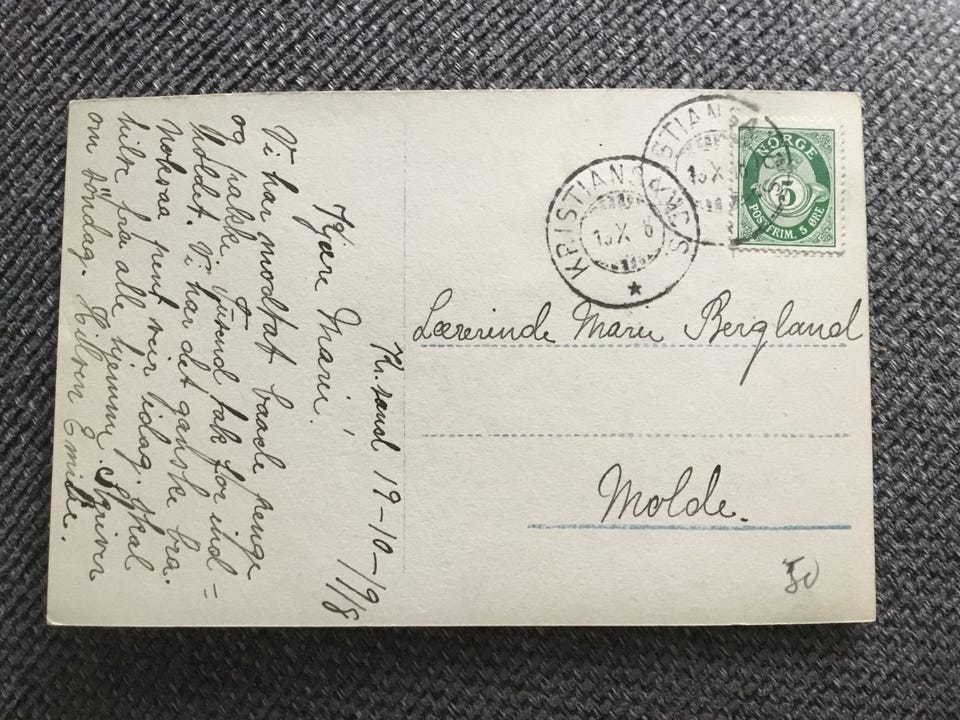 K.sand 19-10-1918
Kjære Marie,
Vi har modtat baade penge
og pakke. Tusend tak for ind-
holdet. Vi har det ganske bra.
Noksaa pent veir idag. Skal
hilse fra alle hjemme. Skriver
om söndag. Hilsen Emilie.
KRISTIANSAND S
KRISTIANSAND S
NORGE
5
POSTFRIM. 5 ØRE
Lærerinde Marie Bergland
Molde.
50